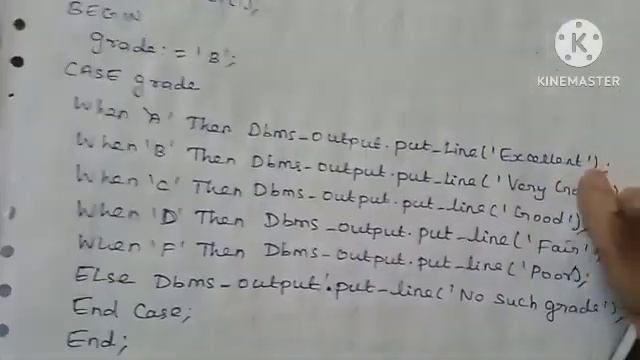 BEGIN
grade:='B';
CASE grade
When 'A' Then Dbms-output.put-line('Excellent');
When 'B' Then Dbms-output.put-line('Very
When 'C' Then Dbms-output.put-line('Good');
When 'D' Then Dbms-output.put-line('Fair');
When 'F' Then Dbms-output.put-line('Poor);
ELse Dbms-output.put-line('No such grade');
End Case;
End;
KINEMASTER